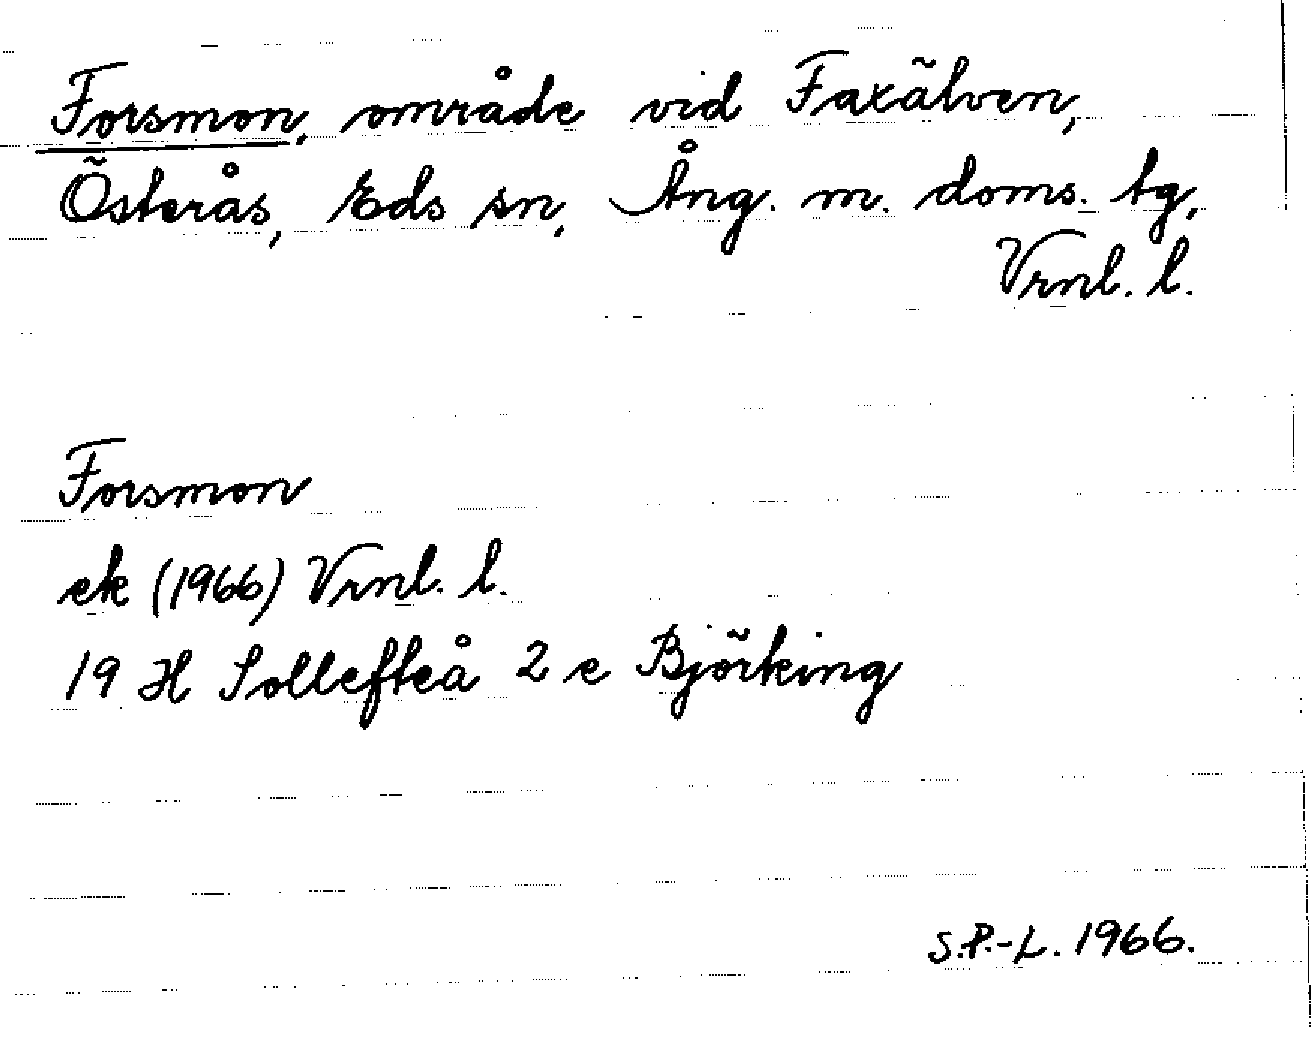 Forsmon, område vid Faxälven,
Österås, Eds sn, Ång. m. doms. tg,
Vrnl. l.
Forsmon
ek (1966) Vrnl. l.
19 H Sollefteå 2 e Björking
S.P.-L. 1966.